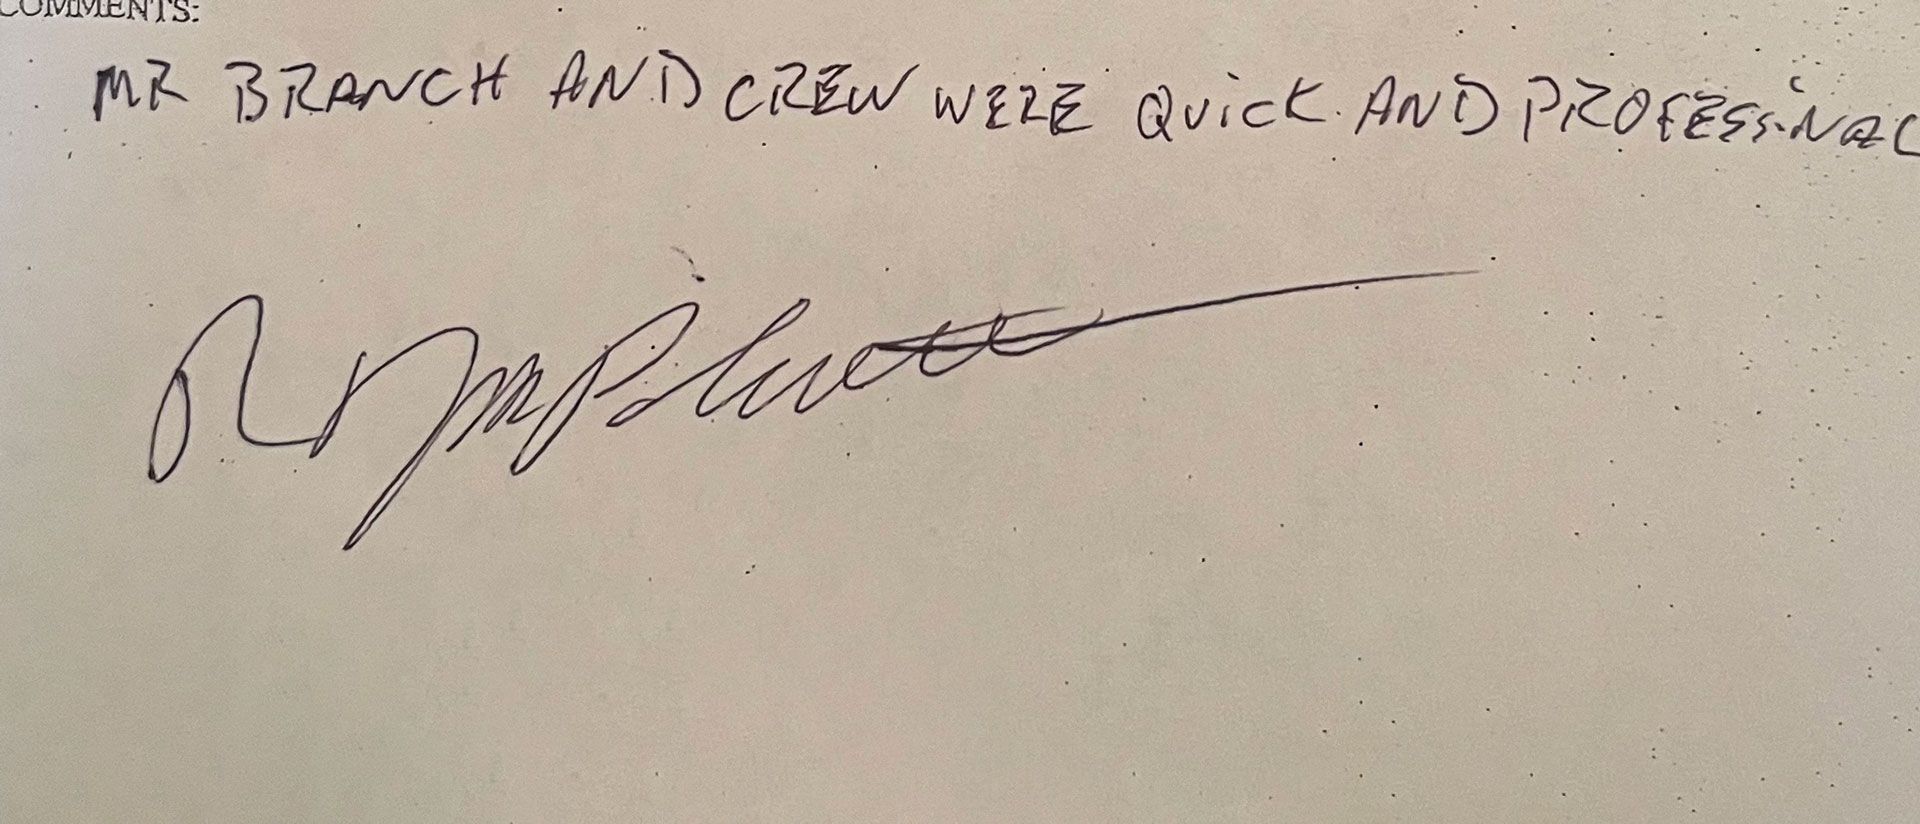 COMMENTS:
MR BRANCH AND CREW WERE QUICK AND PROFESSINAL